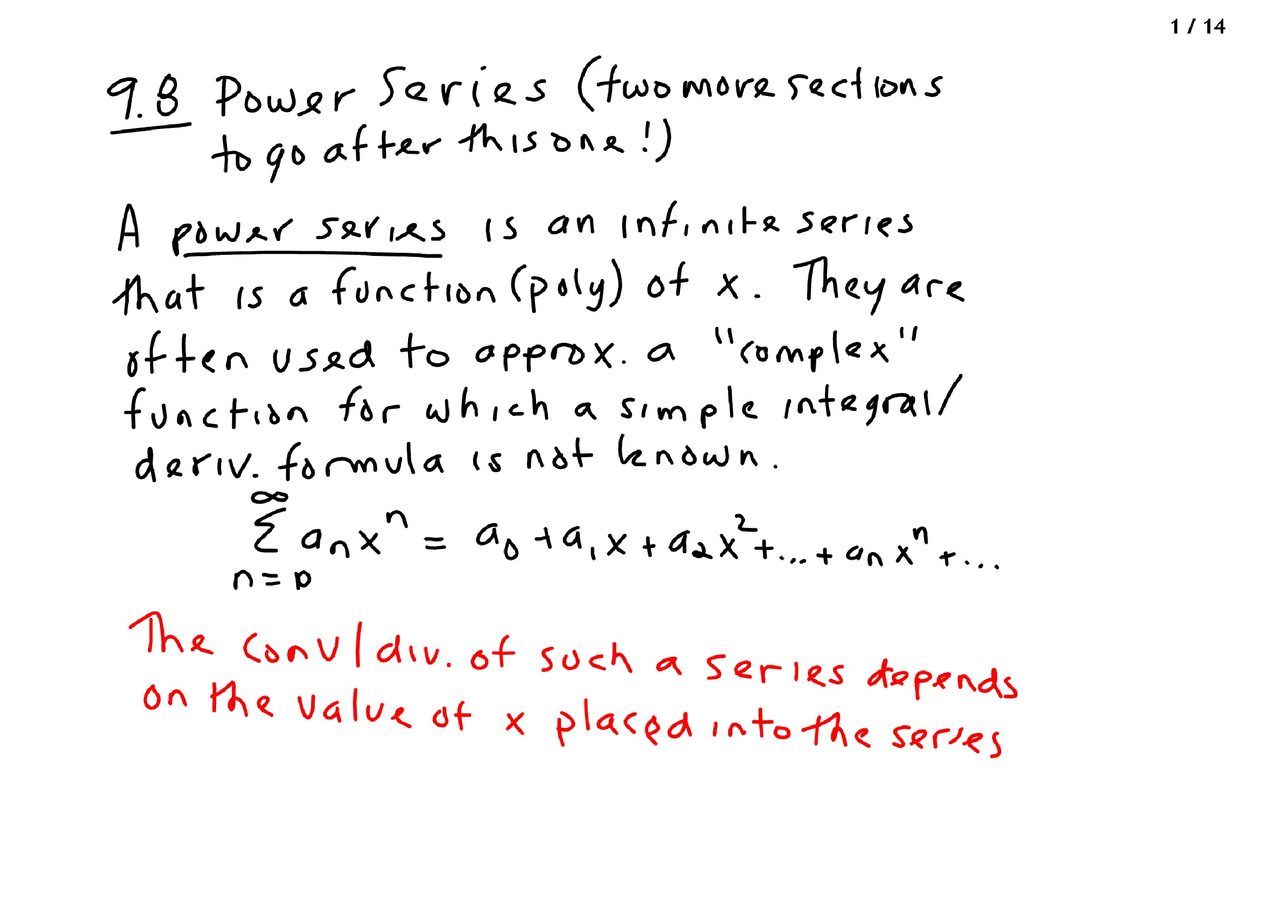 1 / 14
9.8 Power Series (two more sections
to go after this one!)
A power series is an infinite series
that is a function (poly) of x. They are
often used to approx. a "complex"
function for which a simple integral/
deriv. formula is not known.
∞
Σ aₙxⁿ = a₀ + a₁x + a₂x² + ... + aₙxⁿ + ...
n = 0
The conv/div. of such a series depends
on the value of x placed into the series